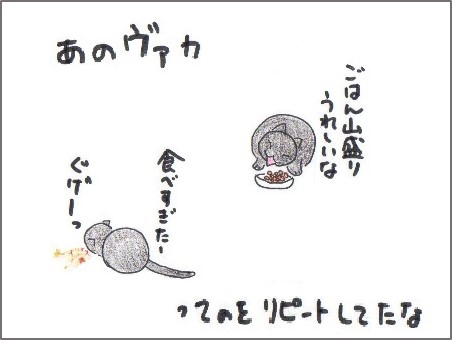 あのヴァカ
ごはん山盛り
うれしいな
食べすぎたー
ぐげーっ
ってのをリピートしてたな